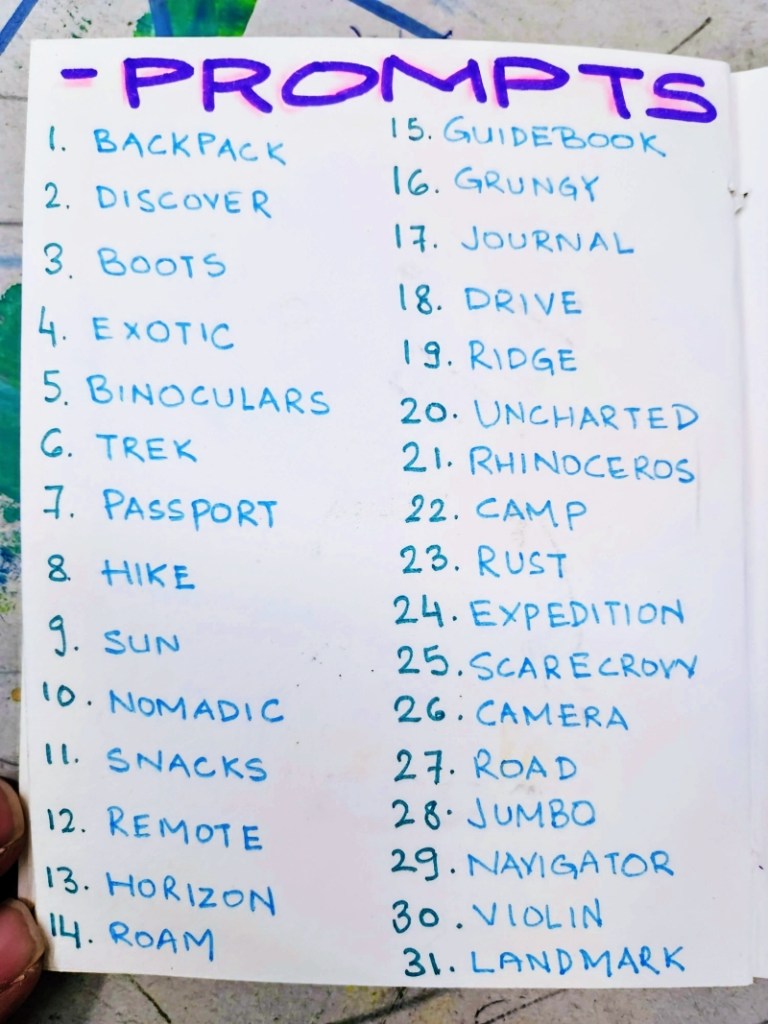 - PROMPTS
1. BACKPACK
2. DISCOVER
3. BOOTS
4. EXOTIC
5. BINOCULARS
6. TREK
7. PASSPORT
8. HIKE
9. SUN
10. NOMADIC
11. SNACKS
12. REMOTE
13. HORIZON
14. ROAM
15. GUIDEBOOK
16. GRUNGY
17. JOURNAL
18. DRIVE
19. RIDGE
20. UNCHARTED
21. RHINOCEROS
22. CAMP
23. RUST
24. EXPEDITION
25. SCARECROW
26. CAMERA
27. ROAD
28. JUMBO
29. NAVIGATOR
30. VIOLIN
31. LANDMARK